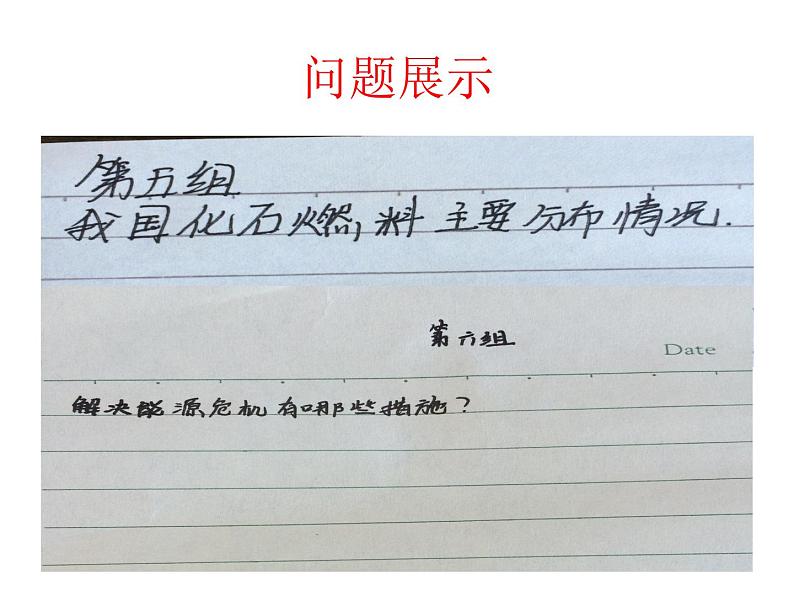 问题展示
第五组
我国化石燃料主要分布情况.
第六组
Date
解决能源危机有哪些措施?